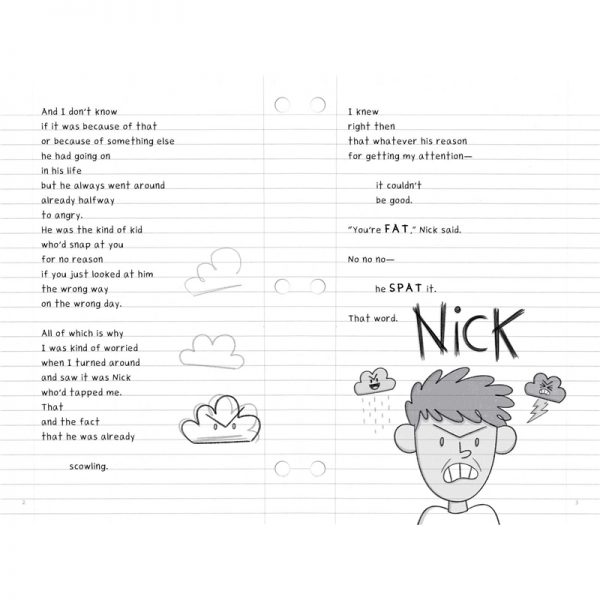 And I don't know
if it was because of that
or because of something else
he had going on
in his life
but he always went around
already halfway
to angry.
He was the kind of kid
who'd snap at you
for no reason
if you just looked at him
the wrong way
on the wrong day.
All of which is why
I was kind of worried
when I turned around
and saw it was Nick
who'd tapped me.
That
and the fact
that he was already
scowling.
2
I knew
right then
that whatever his reason
for getting my attention—
it couldn't
be good.
"You're FAT," Nick said.
No no no—
he SPAT it.
That word.
NiCK
3